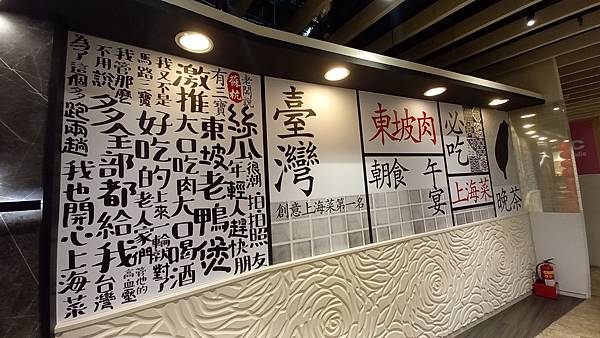 老闆說
蘇杭
有三寶
絲瓜
很潮
年輕人趕快
拍拍照
朋友
東坡老鴨煲
激推大口吃肉大口喝酒
我又不是
馬路三寶
好吃的上來
老人家們
管他的
高血壓
我管那麼多
不用說
全部都給我
為了這個多跑兩趟我也開心
台灣
上海菜
臺灣
創意上海菜第一名
東坡肉
朝食
午宴
必吃
上海菜
晚茶